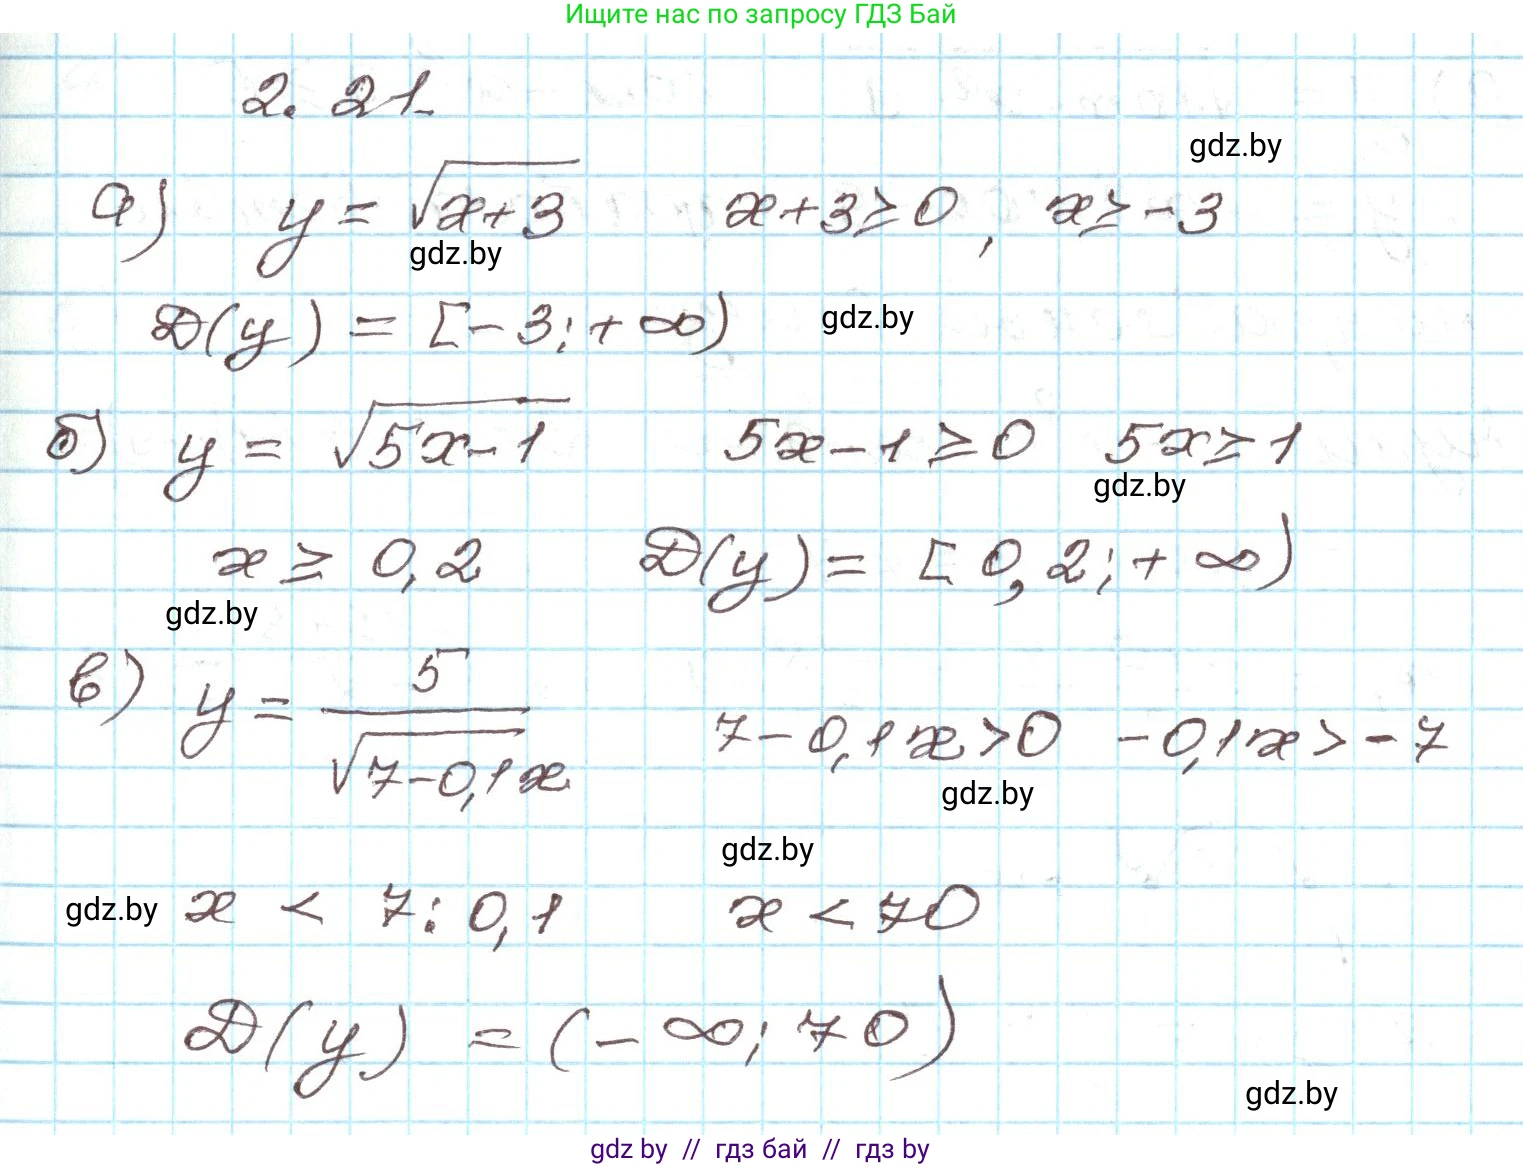 Ищите нас по запросу ГДЗ Бай
2.21.
gdz.by
а) y = √(x+3) x+3≥0, x≥-3
gdz.by
D(y) = [-3; +∞) gdz.by
б) y = √(5x-1) 5x-1≥0 5x≥1
gdz.by
x ≥ 0,2 D(y) = [0,2; +∞)
gdz.by
в) y = 5/√(7-0,1x) 7-0,1x>0 -0,1x>-7
gdz.by
gdz.by
gdz.by x < 7:0,1 x < 70
D(y) = (-∞; 70)
gdz.by
gdz by // гдз бай // гдз by